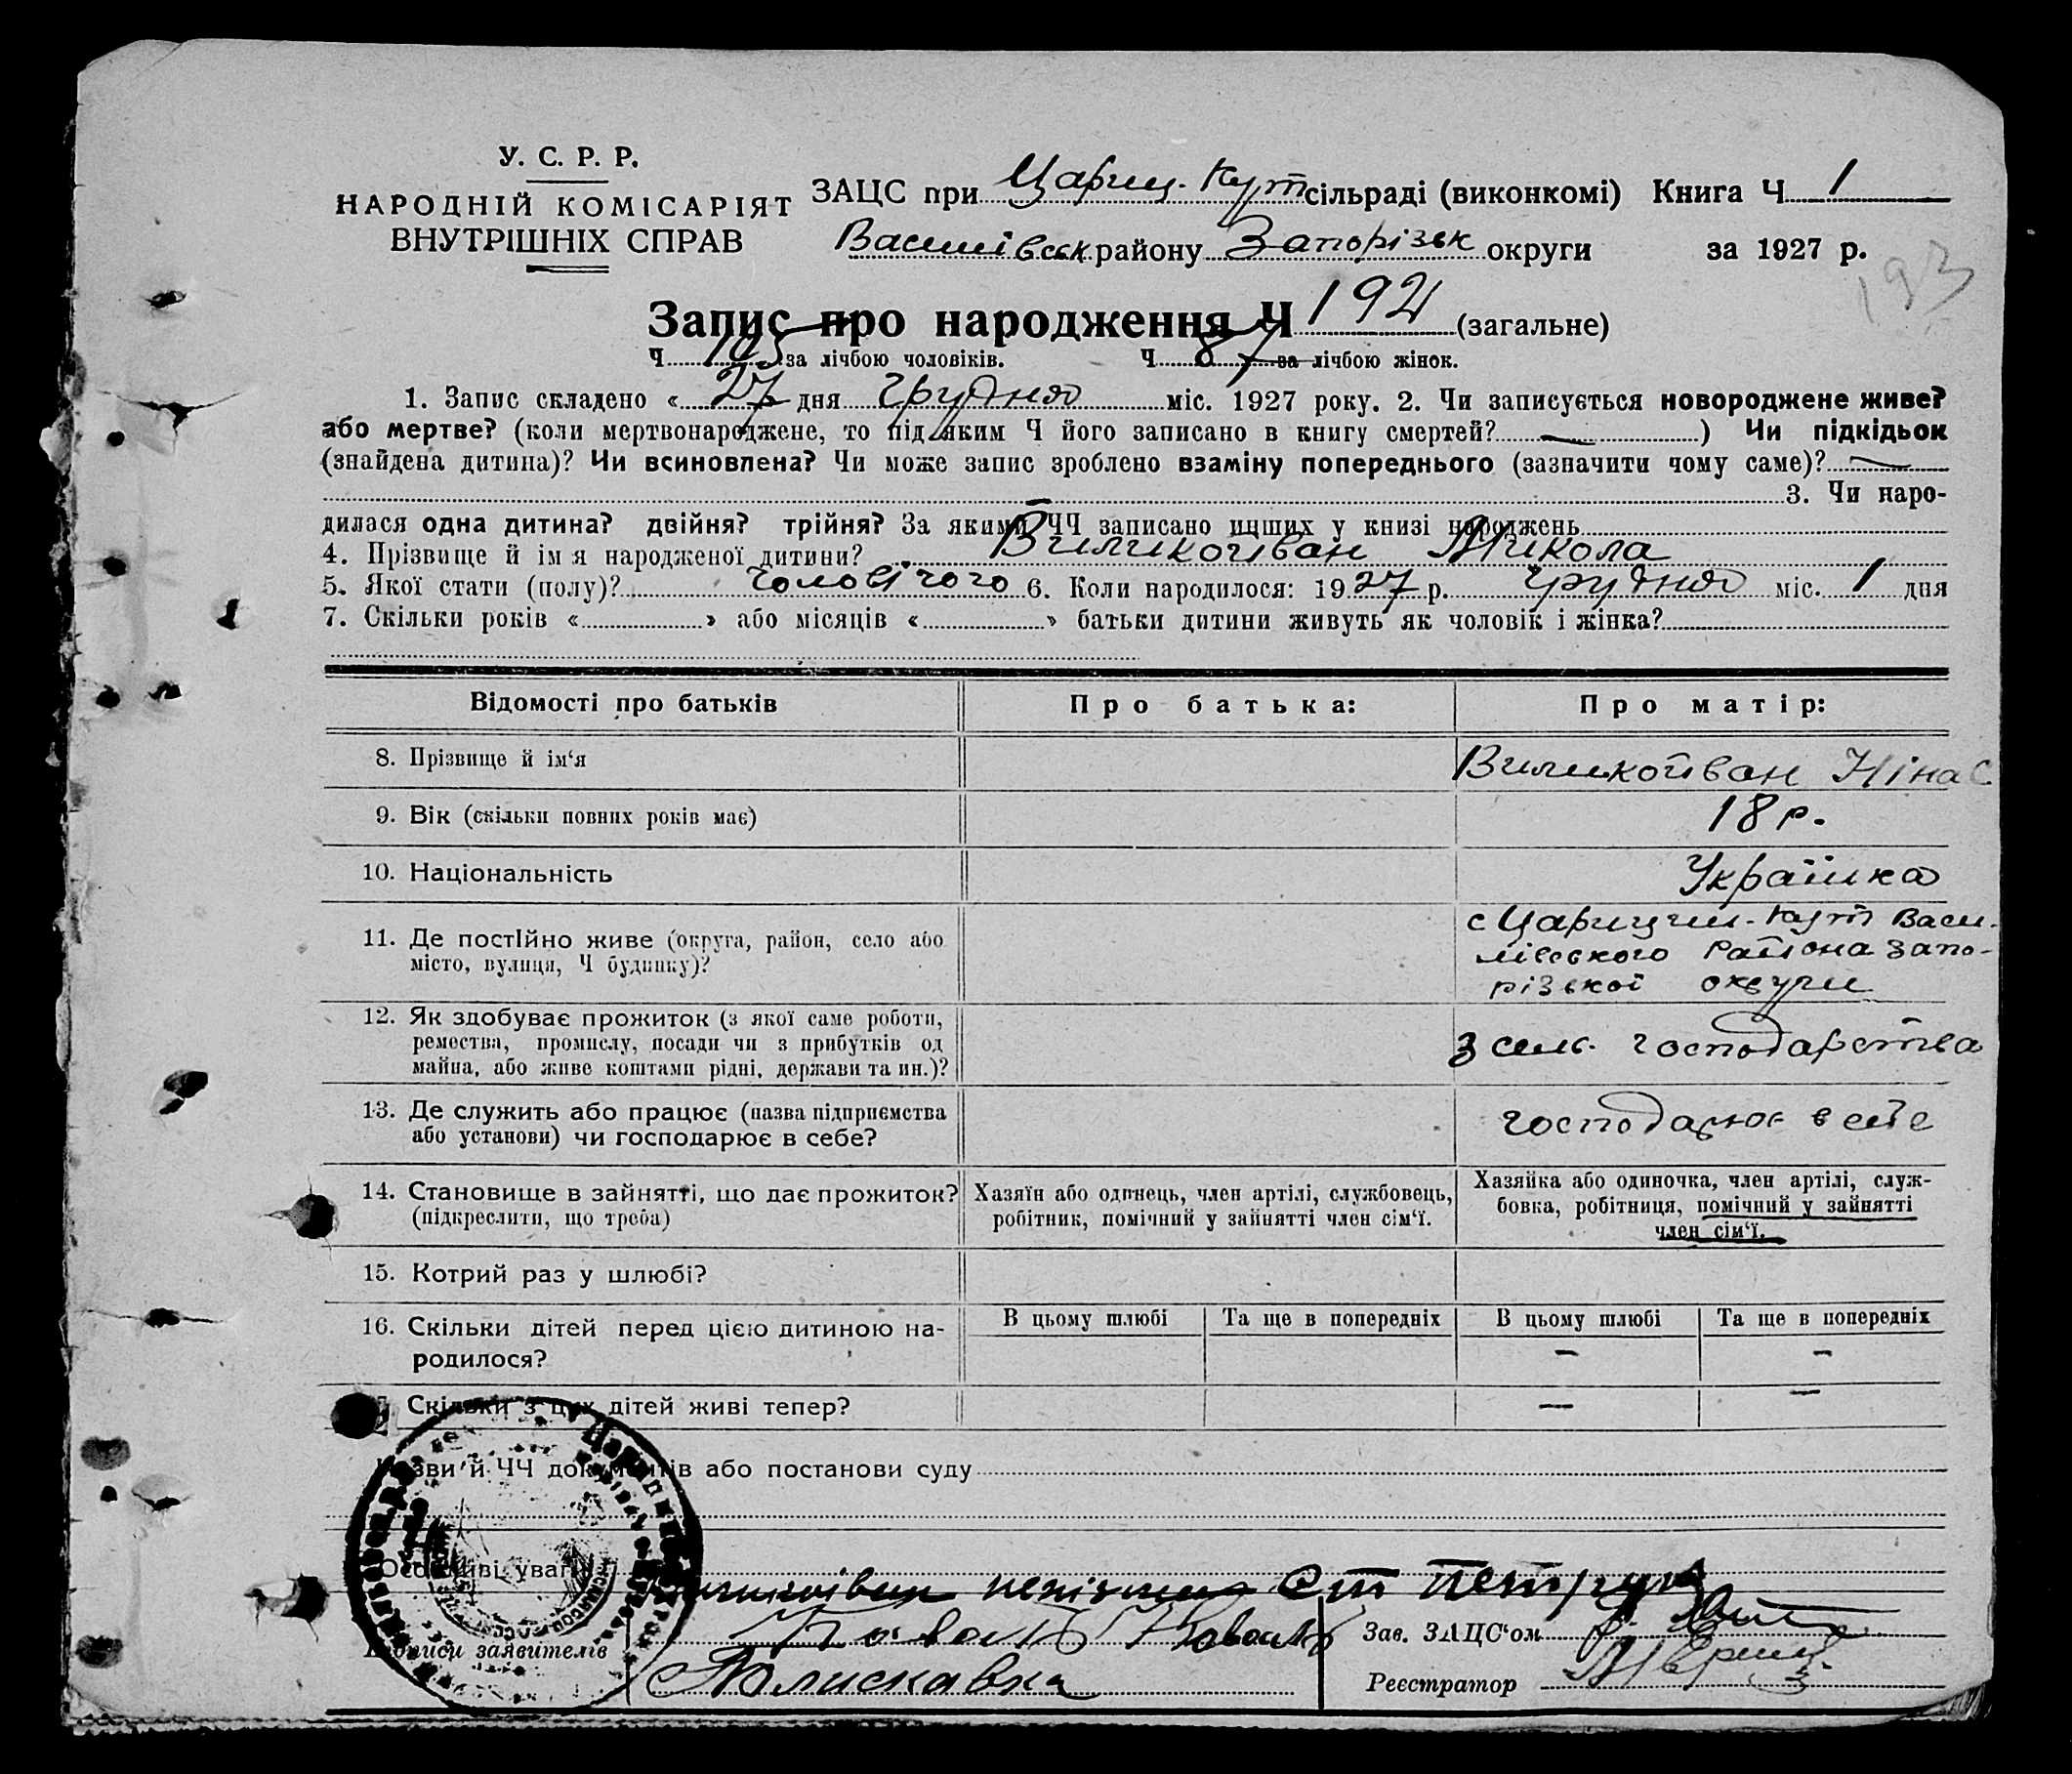 У. С. Р. Р.
НАРОДНІЙ КОМІСАРІЯТ
ВНУТРІШНІХ СПРАВ
ЗАЦС при Цариц. Кут сільраді (виконкомі) Книга Ч 1
Василівськ району Запорізьк округи за 1927 р.
193
Запис про народження Ч 192 (загальне)
Ч 105 за лічбою чоловіків. Ч 87 за лічбою жінок.
1. Запис складено « 27 дня грудня міс. 1927 року. 2. Чи записується новороджене живе?
або мертве? (коли мертвонароджене, то під яким Ч його записано в книгу смертей? — ) Чи підкідьок
(знайдена дитина)? Чи всиновлена? Чи може запис зроблено взаміну попереднього (зазначити чому саме)? —
3. Чи наро-
дилася одна дитина? двійня? трійня? За якими ЧЧ записано инших у книзі народжень
4. Прізвище й ім я народженої дитини? Виликоіван Микола
5. Якої стати (полу)? чоловічого 6. Коли народилося: 1927 р. грудня міс. 1 дня
7. Скільки років « » або місяців « » батьки дитини живуть як чоловік і жінка?
Відомості про батьків Про батька: Про матір:
8. Прізвище й ім‘я Виликоіван Ніна С
9. Вік (скільки повних років має) 18 р.
10. Національність Українка
11. Де постійно живе (округа, район, село або с Царицин. Кут Васи-
місто, вулиця, Ч будинку)? лівського Района Запо-
різької округи
12. Як здобуває прожиток (з якої саме роботи,
ремества, промислу, посади чи з прибутків од з сель. господарства
майна, або живе коштами рідні, держави та ин.)?
13. Де служить або працює (назва підприємства господарює в себе
або установи) чи господарює в себе?
14. Становище в зайнятті, що дає прожиток? Хазяїн або одинець, член артілі, службовець, Хазяйка або одиночка, член артілі, служ-
(підкреслити, що треба) робітник, помічний у зайнятті член сім‘ї. бовка, робітниця, помічний у зайнятті
член сім‘ї.
15. Котрий раз у шлюбі?
16. Скільки дітей перед цією дитиною на- В цьому шлюбі Та ще в попередніх В цьому шлюбі Та ще в попередніх
родилося? — —
Скільки з цих дітей живі тепер? — —
й ЧЧ документів або постанови суду
Особливі уваги
Підписи заявителів Коваль Зав. ЗАЦС‘ом
Реєстратор